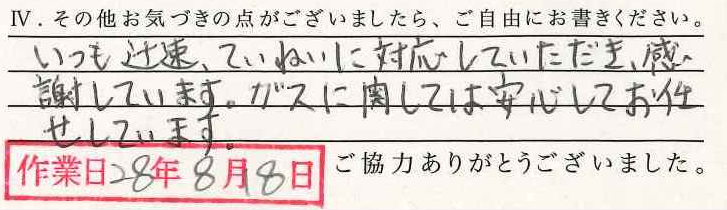 Ⅳ．その他お気づきの点がございましたら、ご自由にお書きください。
いつも迅速、ていねいに対応していただき、感
謝しています。ガスに関しては安心してお任
せしています。
作業日28年8月18日
ご協力ありがとうございました。